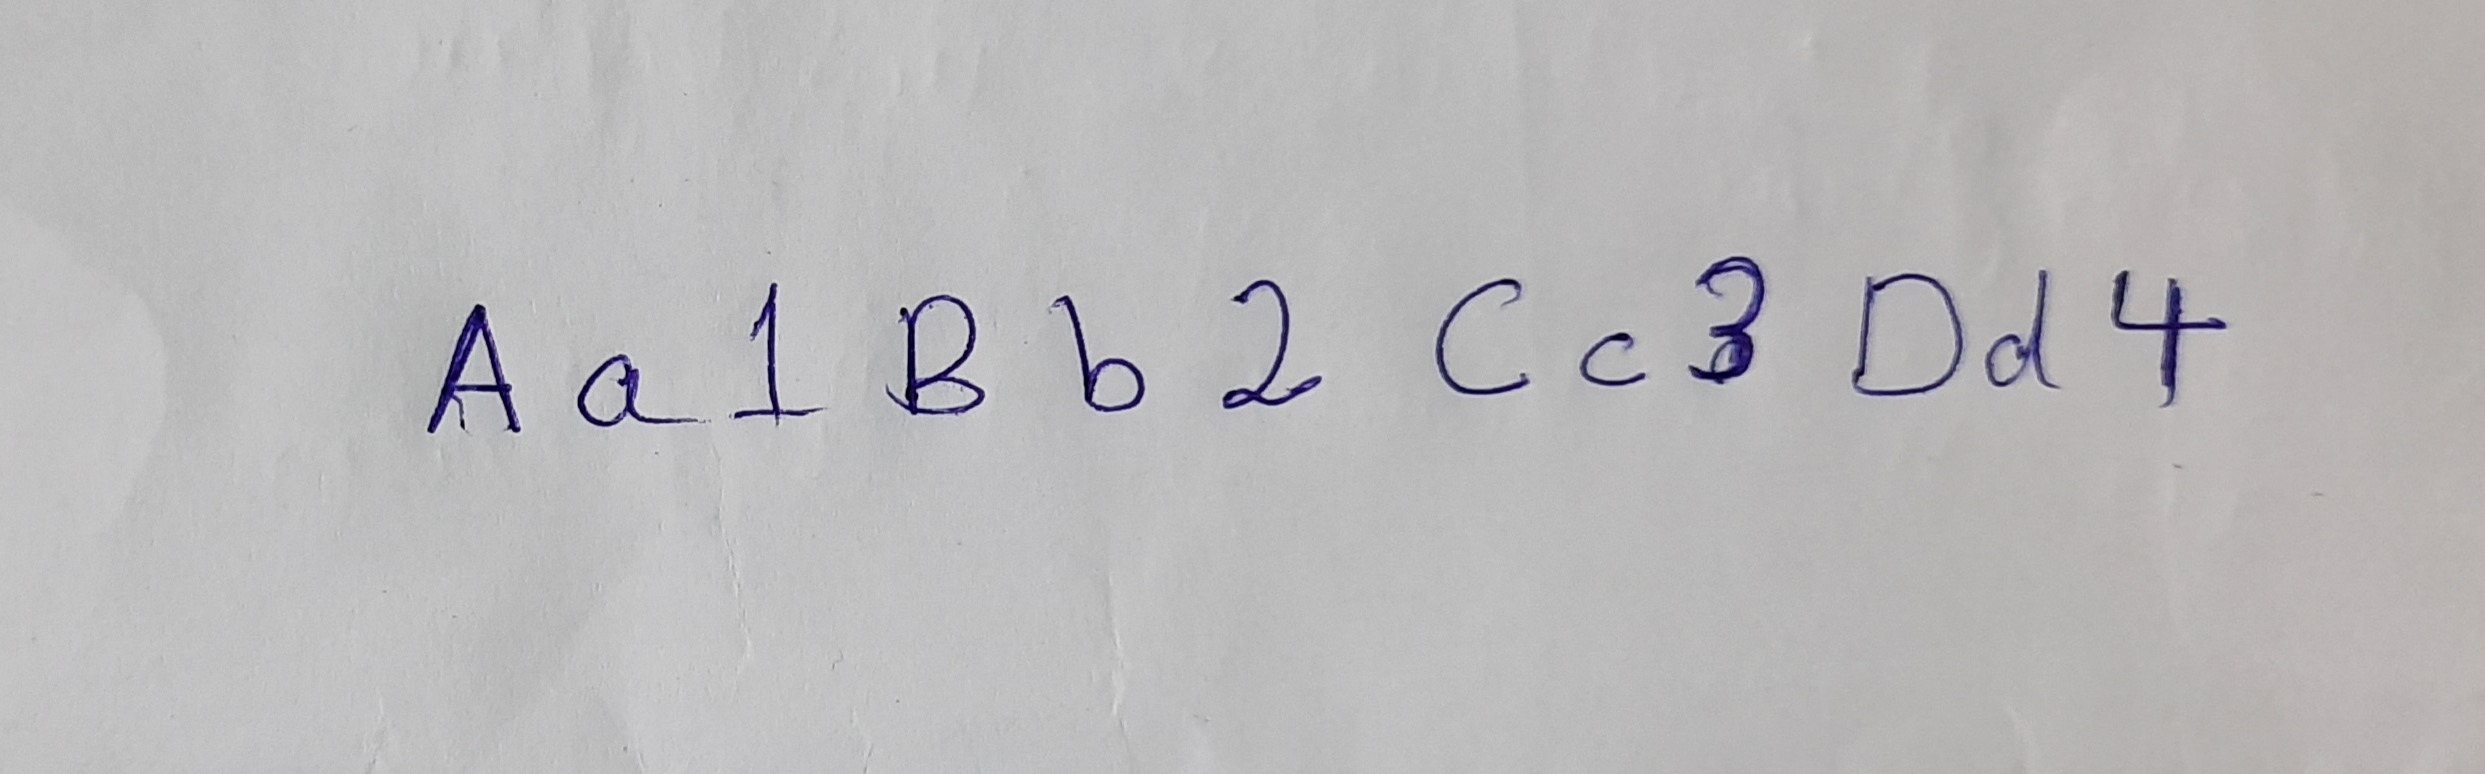 A a 1 B b 2 C c 3 D d 4